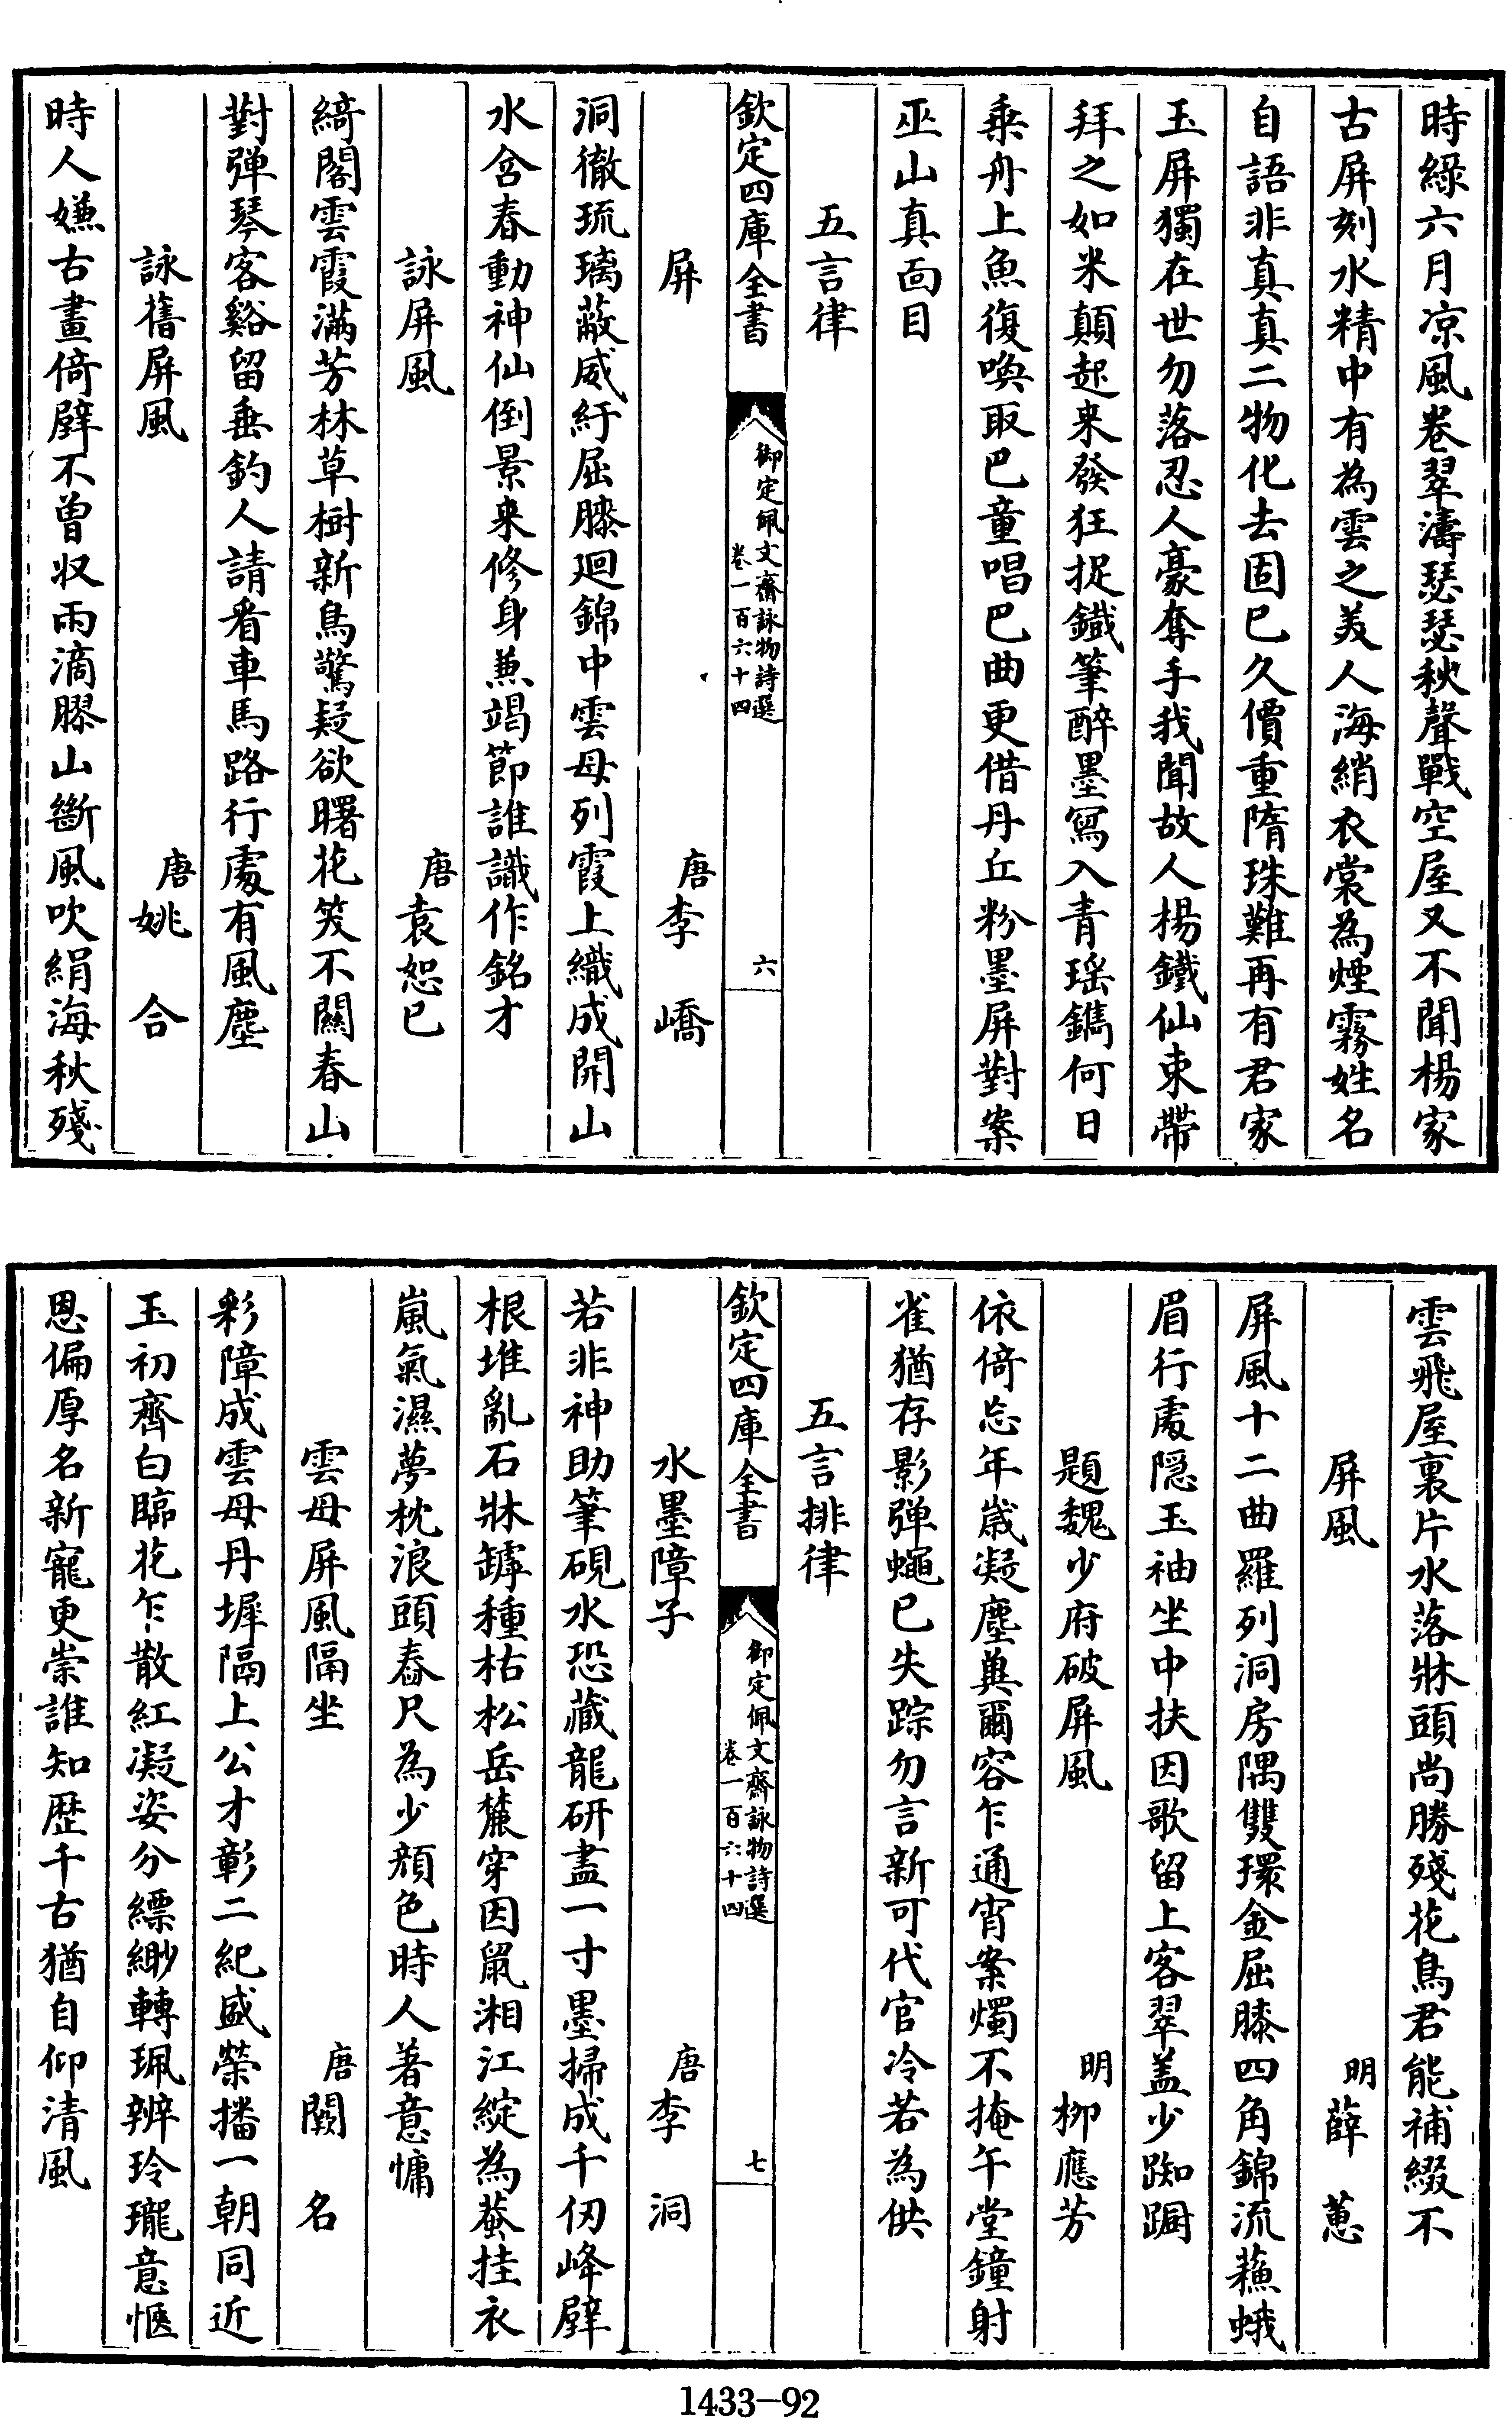 時綠六月凉風卷翠濤瑟瑟秋聲戰空屋又不聞楊家
古屏刻水精中有為雲之美人海綃衣裳為煙霧姓名
自語非真真二物化去固已久價重隋珠難再有君家
玉屏獨在世勿落忍人豪奪手我聞故人楊鐵仙束帶
拜之如米顛起来發狂捉鐡筆醉墨寫入青瑶鐫何日
乗舟上魚復喚取巴童唱巴曲更借丹丘粉墨屏對案
巫山真面目
五言律
欽定四庫全書
御定佩文齋詠物詩選
卷一百六十四
六
屏
唐李嶠
洞徹琉璃蔽威紆屈膝廻錦中雲母列霞上織成開山
水含春動神仙倒景来修身兼竭節誰識作銘才
詠屏風
唐袁恕已
綺閣雲霞滿芳林草樹新鳥驚疑欲曙花笑不關春山
對弹琴客谿留垂釣人請看車馬路行處有風塵
詠舊屏風
唐姚合
時人嫌古畫倚壁不曾収雨滴膠山斷風吹絹海秋殘
雲飛屋裏片水落牀頭尚勝殘花鳥君能補綴不
屏風
明薛蕙
屏風十二曲羅列洞房隅雙環金屈膝四角錦流蘓蛾
眉行處隠玉袖坐中扶因歌留上客翠盖少踟蹰
題魏少府破屏風
明柳應芳
依倚忘年歲凝塵奠爾容乍通宵案燭不掩午堂鐘射
雀猶存影弹蠅已失踪勿言新可代官冷若為供
五言排律
欽定四庫全書
御定佩文齋詠物詩選
卷一百六十四
七
水墨障子
唐李洞
若非神助筆硯水恐藏龍研盡一寸墨掃成千仞峰壁
根堆亂石牀罅種枯松岳麓穿因鼠湘江綻為蛬挂衣
嵐氣濕夢枕浪頭舂尺為少顔色時人著意慵
雲母屏風隔坐
唐闕名
彩障成雲母丹墀隔上公才彰二紀盛榮播一朝同近
玉初齊白臨花乍散紅凝姿分縹緲轉珮辨玲瓏意愜
恩偏厚名新寵更崇誰知歴千古猶自仰清風
1433-92